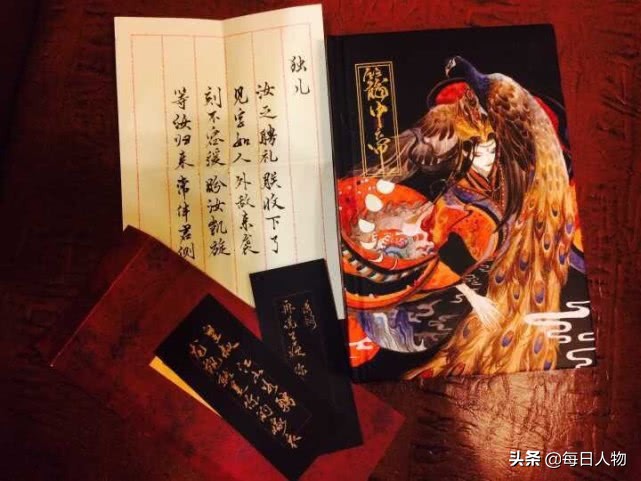 独儿
汝之聘礼朕收下了
见字如人外敌来袭
刻不容缓盼汝凯旋
等汝归来常伴君侧
籠中帝
皇叔
头条 @每日人物